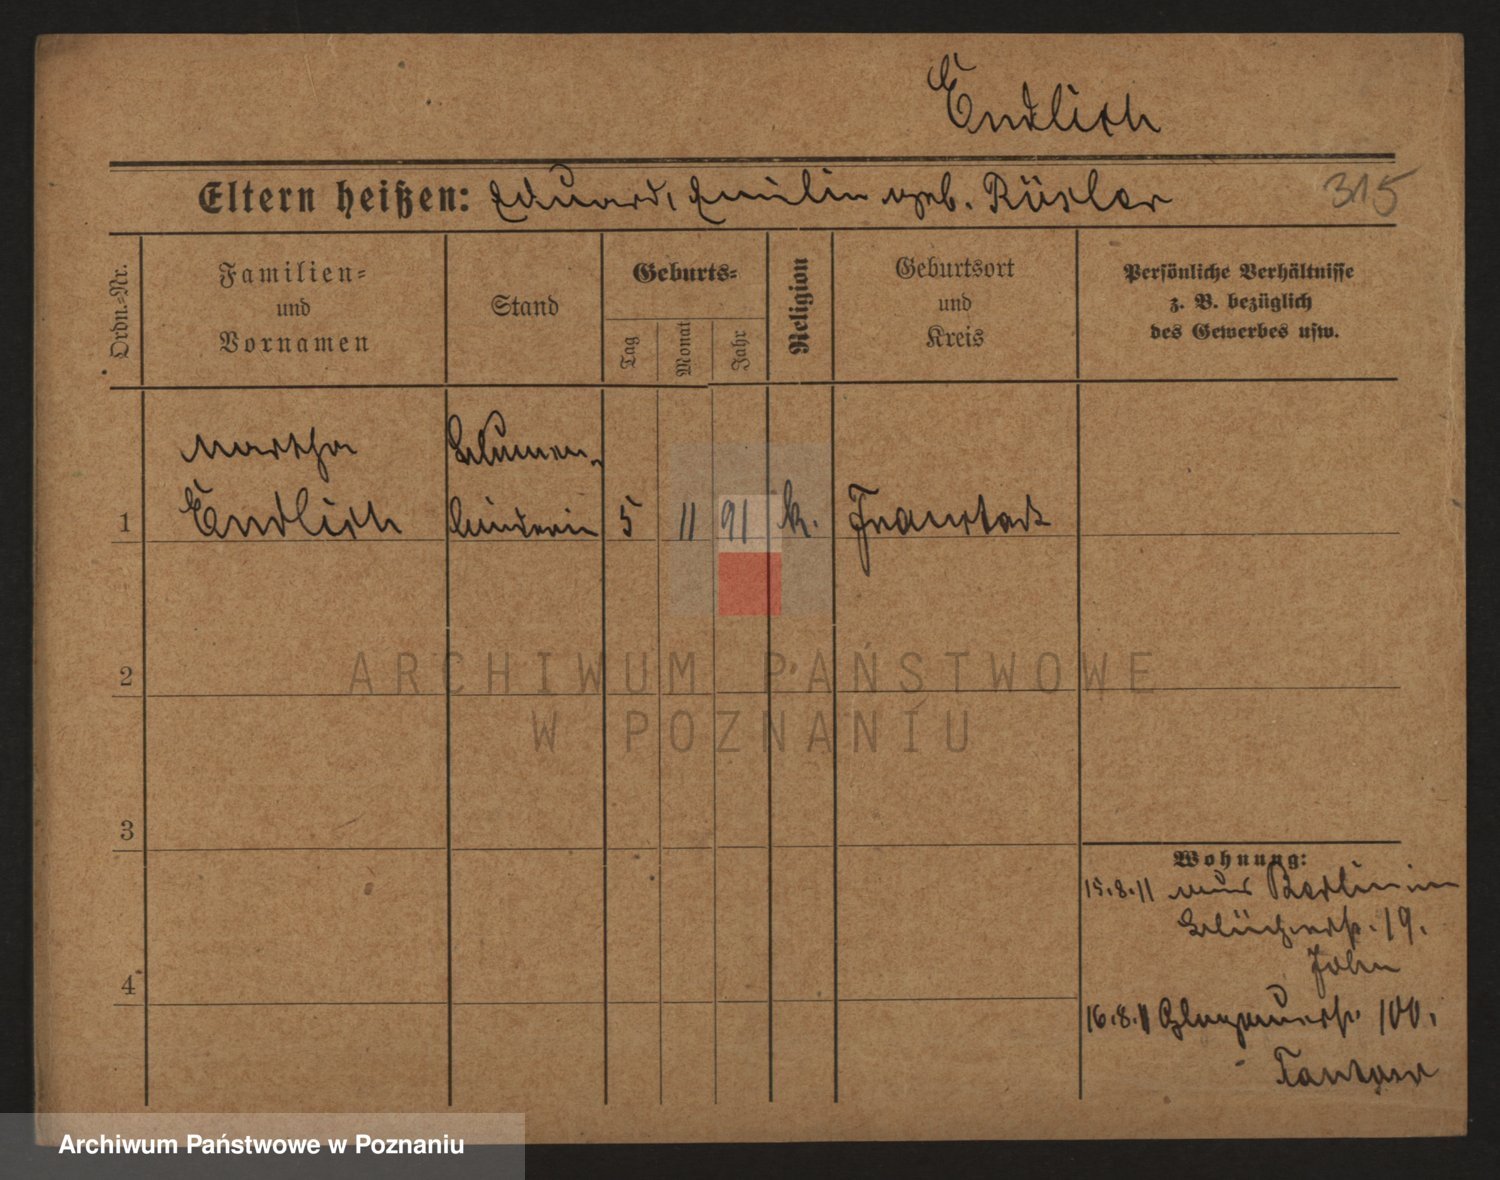 Endlich
Eltern heißen: Eduard, Emilie geb. Rösler
315
Ordn.=Nr.
Familien=
und
Vornamen
Stand
Geburts=
Tag
Monat
Jahr
Religion
Geburtsort
und
Kreis
Persönliche Verhältnisse
z. B. bezüglich
des Gewerbes usw.
Martha Blumen-
1 Endlich binderin 5 11 91 k. Fraustadt
2
3
4
Wohnung:
15.8.11 aus Berlin
Blücherstr. 19.
John
16.8.11 Glogauerstr. 100.
ARCHIWUM PAŃSTWOWE
W POZNANIU
Archiwum Państwowe w Poznaniu